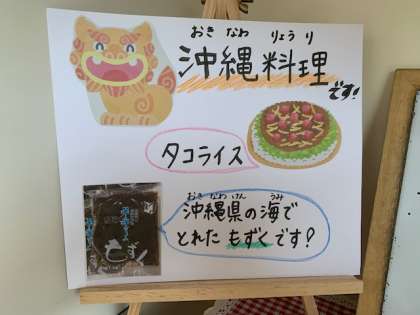 おき なわ りょう り
沖縄料理
です!
タコライス
おき なわ けん うみ
沖縄県の海で
とれた もずくです?
もずく